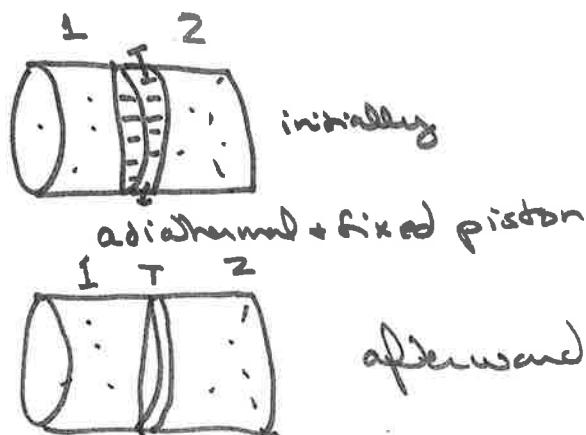 1 2
initially
adiathermal + fixed piston
1 T 2
afterward